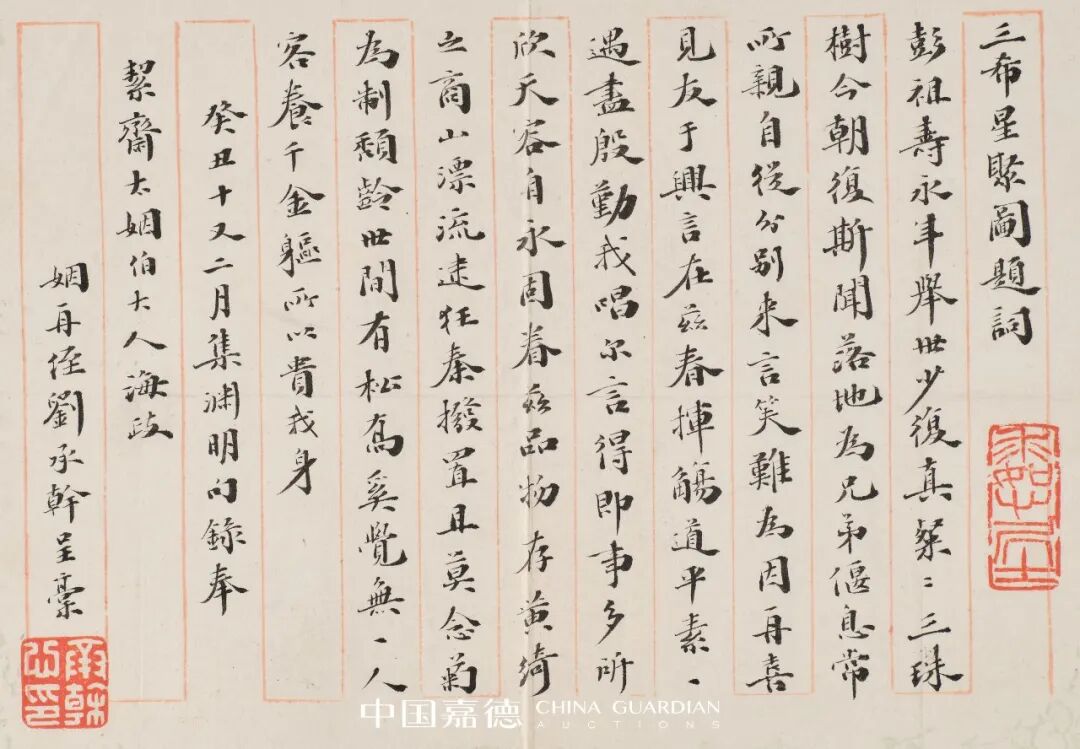 三布星聚圖題詞
彭祖壽永年舉世少復真粲〻三珠
樹今朝復斯聞落地為兄弟偃息常
所親自從分別來言笑難為因再喜
見友于興言在茲春揮觴道平素一
遇盡殷勤我唱尔言得即事多所
欣天容自永固眷茲品物存黃綺
之商山漂流逮狂秦撥置且莫念菊
為制頹齡世間有松喬奚覺無一人
客養千金軀所以貴我身
癸丑十又二月集渊明句錄奉
絜齋太姻伯大人誨政
姻再侄劉承幹呈稾
求恕居士
承幹之印
中国嘉德 CHINA GUARDIAN
AUCTIONS